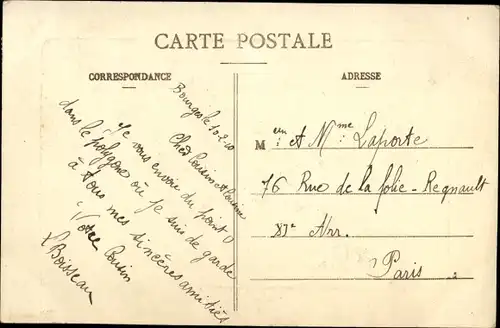 CARTE POSTALE
CORRESPONDANCE
Bourges le 10-2-10
Chers Cousin et Cousine
Je vous envoie du point
dans le polygone où je suis de garde
à tous mes sincères amitiés
Votre Cousin
L Boisseau
ADRESSE
Meur et Mme Laporte
76 Rue de la folie-Regnault
Arr.
Paris